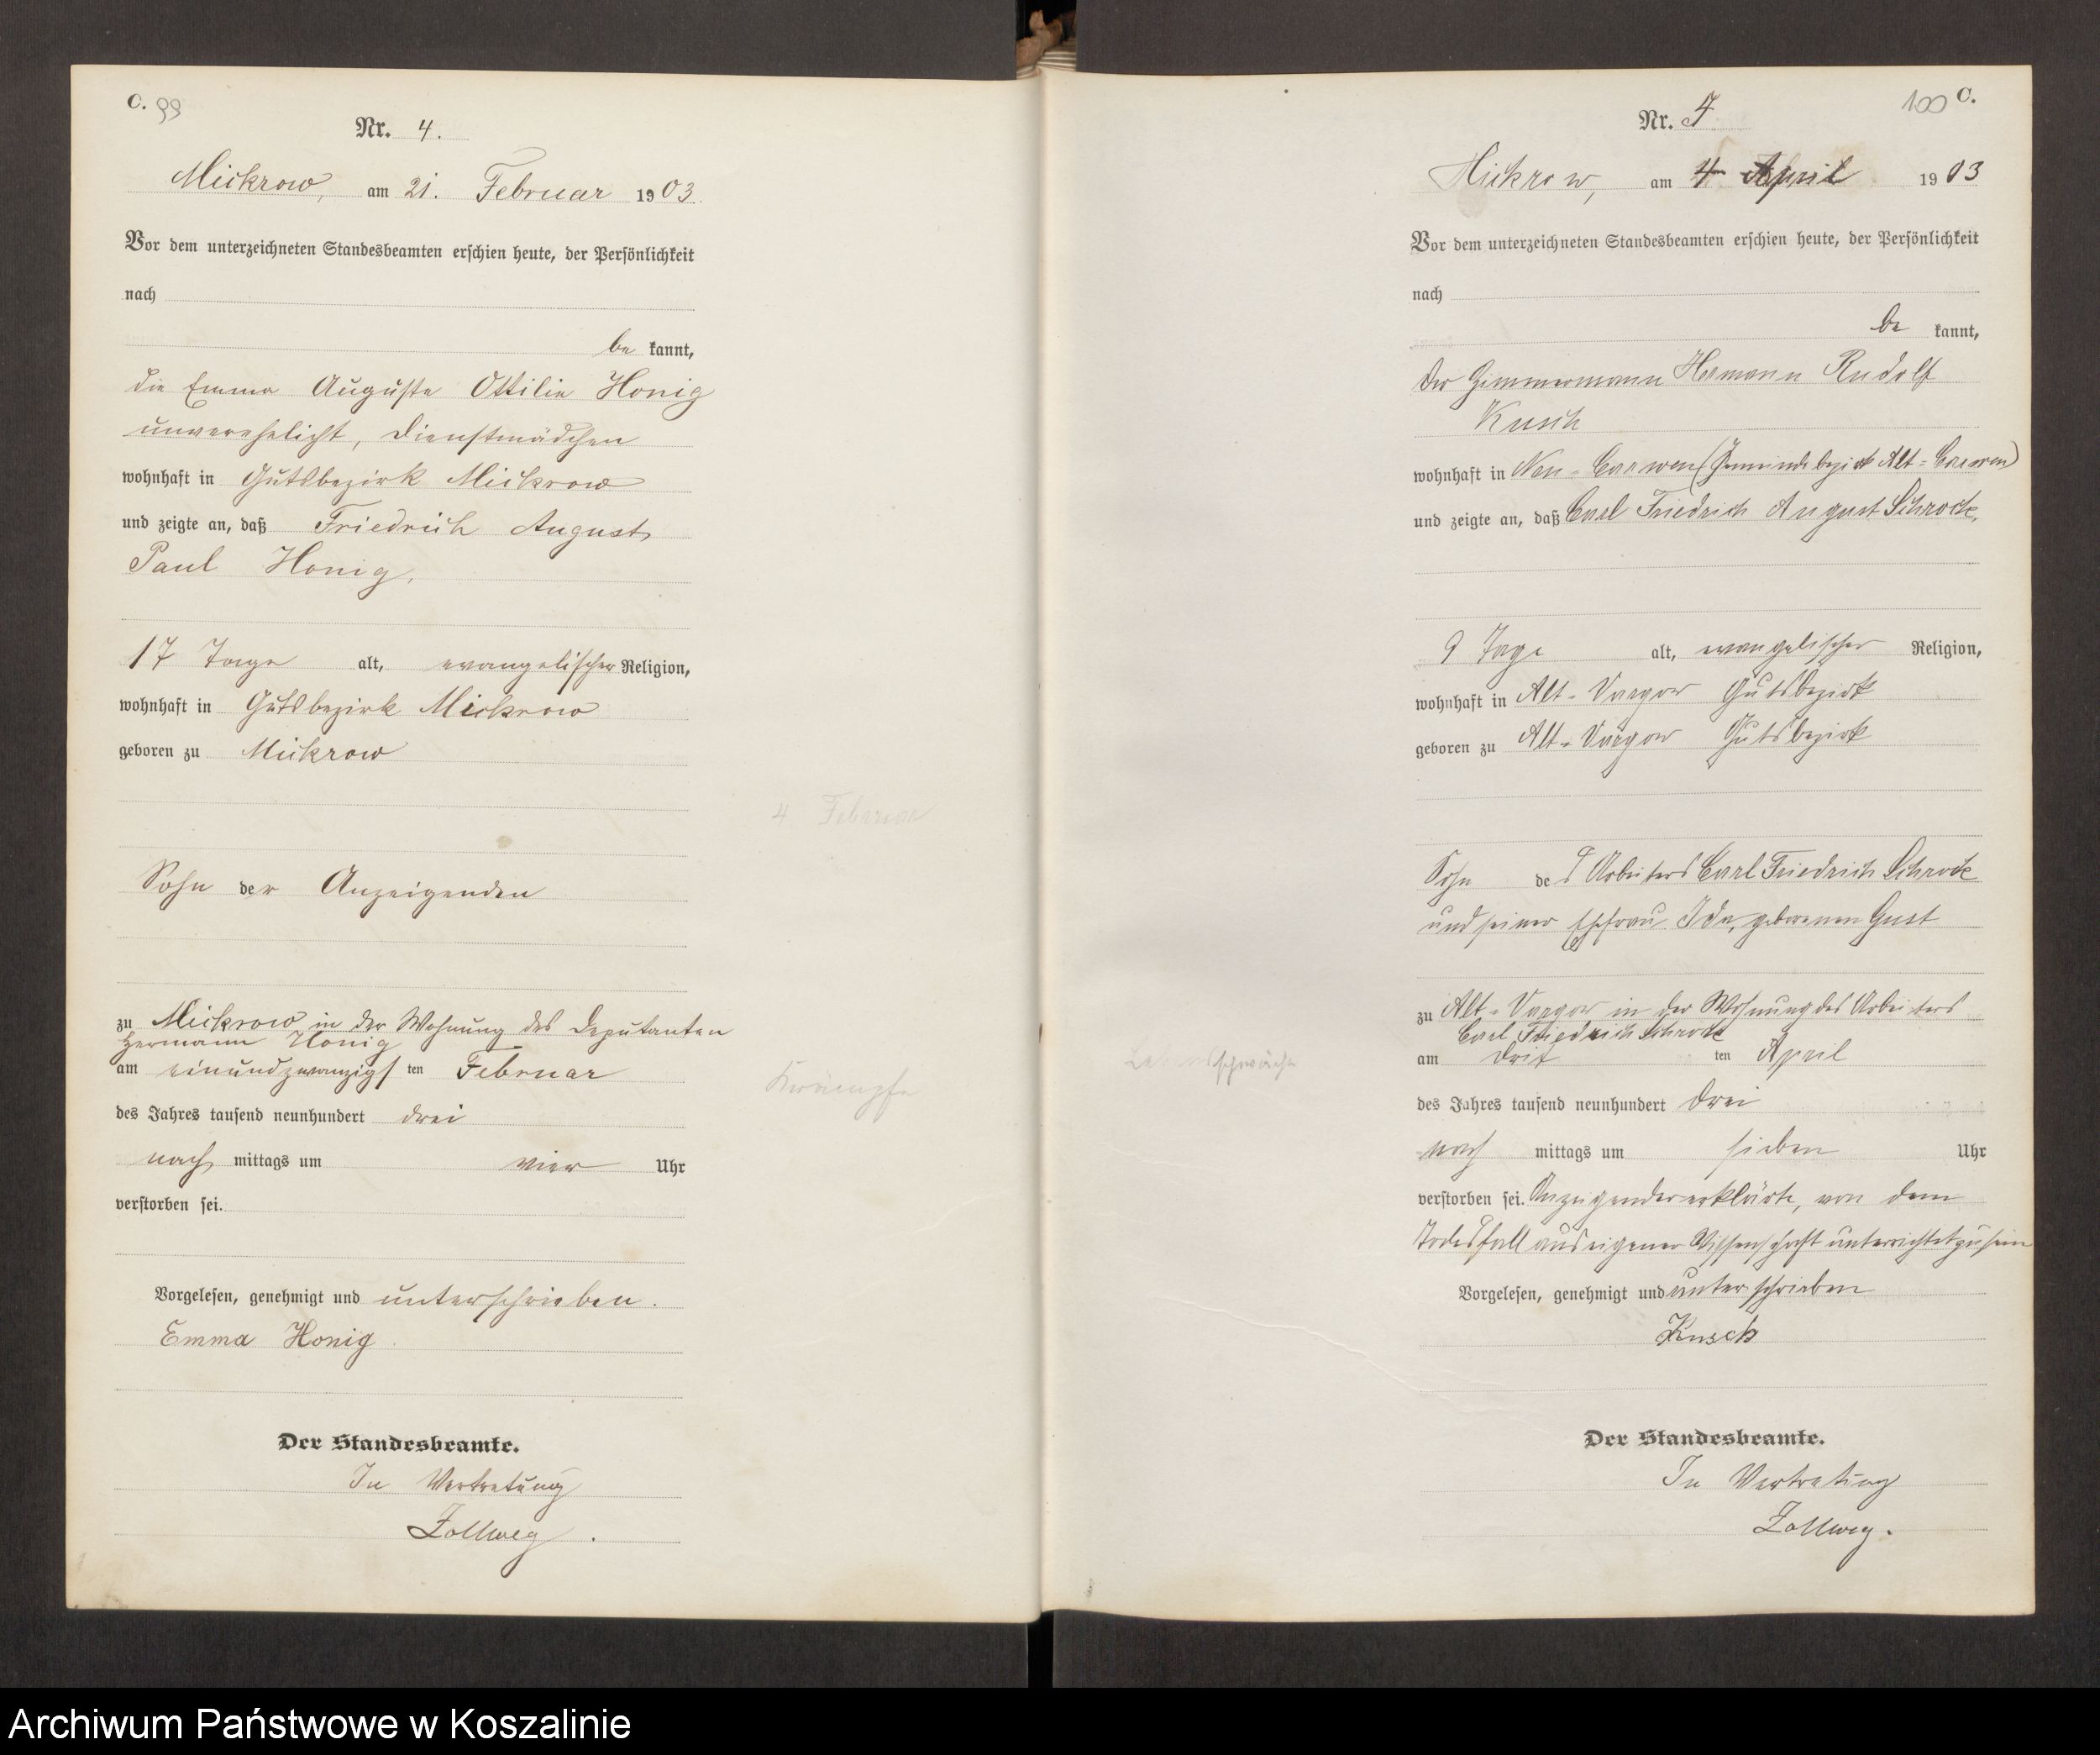 C. 99
Nr. 4.
Mickrow, am 21. Februar 1903.
Vor dem unterzeichneten Standesbeamten erschien heute, der Persönlichkeit
nach
be kannt,
die Emma Auguste Ottilie Honig
unverehelicht, Dienstmädchen
wohnhaft in Gutsbezirk Mickrow
und zeigte an, daß Friedrich August
Paul Honig,
17 Tage alt, evangelischer Religion,
wohnhaft in Gutsbezirk Mickrow
geboren zu Mickrow
4 Februar
Sohn der Anzeigenden
zu Mickrow in der Wohnung des Deputanten
Hermann Honig
am einundzwanzigsten Februar
Kraempfe
des Jahres tausend neunhundert drei
nach mittags um vier Uhr
verstorben sei.
Vorgelesen, genehmigt und unterschrieben.
Emma Honig
Der Standesbeamte.
In Vertretung
Zollweg.
100 C.
Nr.
Mickrow, am 4 April 1903
Vor dem unterzeichneten Standesbeamten erschien heute, der Persönlichkeit
nach
be kannt,
der Zimmermann Hermann Rudolf
Kusch
wohnhaft in Neu-Carwen (Gemeindebezirk Alt-Carwen)
und zeigte an, daß Carl Friedrich August Schrock,
9 Tage alt, evangelischer Religion,
wohnhaft in Alt-Vargow Gutsbezirk
geboren zu Alt-Vargow Gutsbezirk
Sohn des Arbeiters Carl Friedrich Schrock
und seiner Ehefrau Ida, geborenen Gust
zu Alt-Vargow in der Wohnung des Arbeiters
Carl Friedrich Schrock
Lebensschwäche
am drit ten April
des Jahres tausend neunhundert drei
nach mittags um sieben Uhr
verstorben sei. Anzeigender erklärte, von dem
Todesfall aus eigener Wissenschaft unterrichtet zu sein
Vorgelesen, genehmigt und unterschrieben
Kusch
Der Standesbeamte.
In Vertretung
Zollweg.
Archiwum Państwowe w Koszalinie